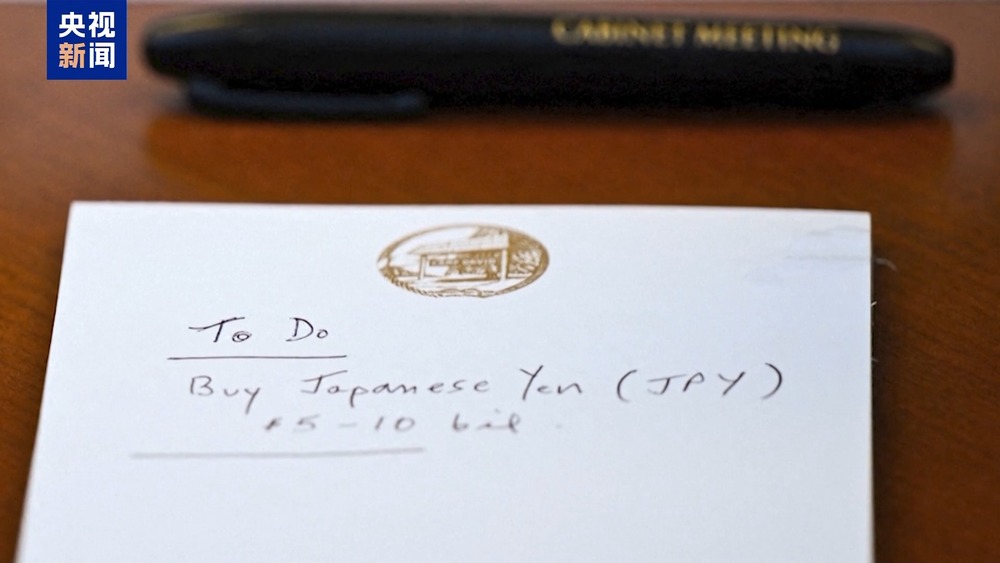 央视
新闻
CABINET MEETING
CAMP DAVID
To Do
Buy Japanese Yen (JPY)
$5-10 bil